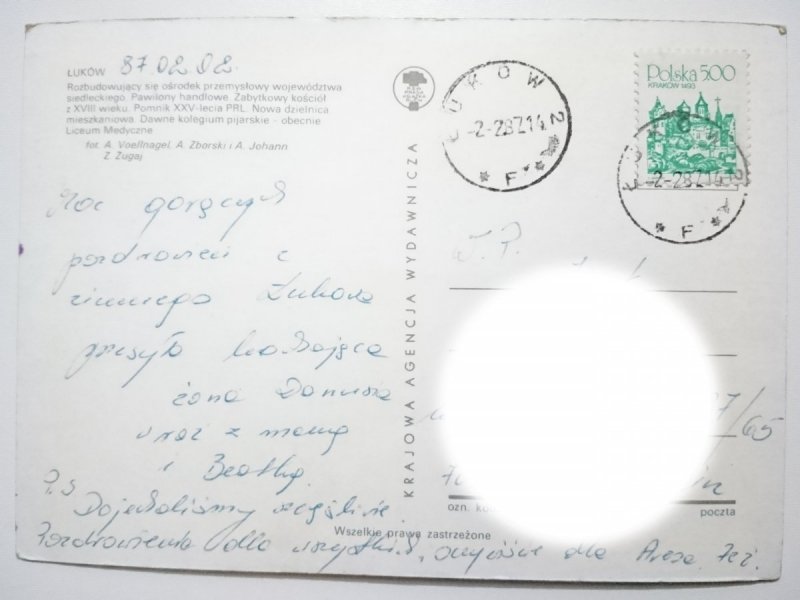 ŁUKÓW 87.02.02.
Rozbudowujący się ośrodek przemysłowy województwa
siedleckiego. Pawilony handlowe. Zabytkowy kościół
z XVIII wieku. Pomnik XXV-lecia PRL. Nowa dzielnica
mieszkaniowa. Dawne kolegium pijarskie - obecnie
Liceum Medyczne
fot. A. Voellnagel, A. Zborski i A. Johann
Z. Żugaj
Moc gorących
pozdrowień z
zimnego Łukowa
przesyła kochająca
żona Danusia
wraz z mamą
i Beatką.
P.S
Dojechaliśmy szczęśliwie.
Pozdrowienia dla wszystkich, oczywiście dla
KRAJOWA AGENCJA WYDAWNICZA
Wszelkie prawa zastrzeżone
ŁUKÓW 2
-2-2
F
Polska 500
KRAKÓW 1493
ŁUKÓW 2
-2-2
F
W. P.
7/65
ozn.
poczta